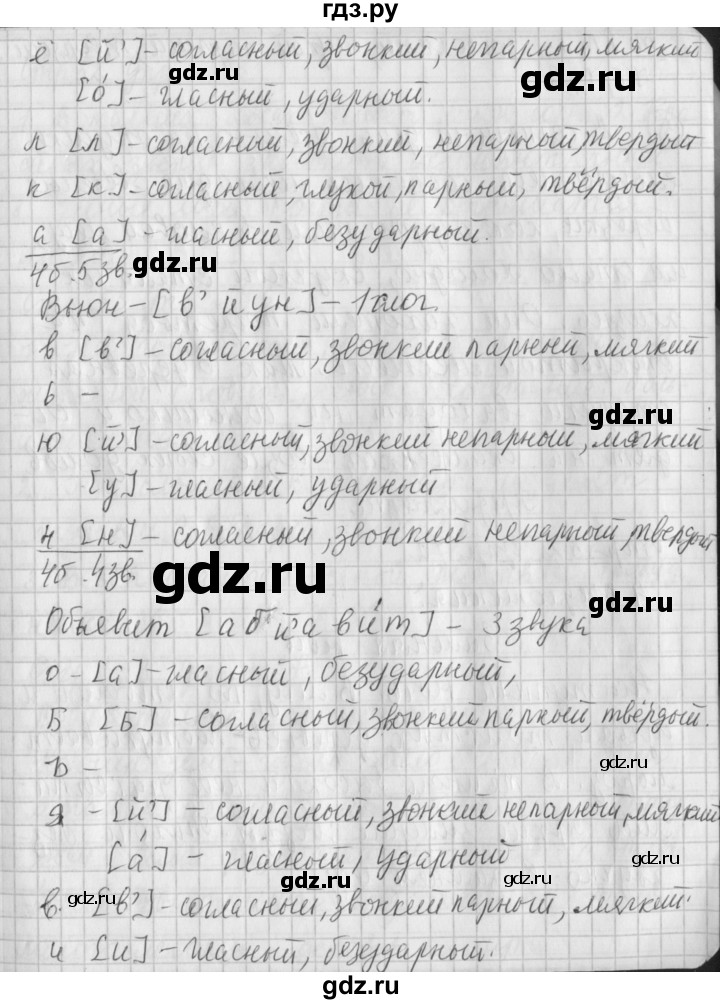 гдз.ру
ё [й'] - согласный, звонкий, непарный, мягкий
gdz.ru
[о́] - гласный, ударный.
gdz.ru
л [л] - согласный, звонкий, непарный, твердый
к [к] - согласный, глухой, парный, твёрдый.
gdz.ru
а [а] - гласный, безударный.
4б. 5 зв.
gdz.ru
Вьюн - [в' й у н] - 1 слог.
в [в'] - согласный, звонкий парный, мягкий
ь -
gdz.ru
ю [й'] - согласный, звонкий непарный, мягкий
gdz.ru
[у] - гласный, ударный
н [н] - согласный, звонкий непарный твердый
gdz.ru
4б. 4 зв.
gdz.ru
Объявит [а б й' а в и́ т] - 3 звука
о - [а] - гласный, безударный,
gdz.ru
Б [Б] - согласный, звонкий парный, твёрдый.
ъ -
gdz.ru
я - [й'] - согласный, звонкий непарный, мягкий
gdz.ru
[а́] - гласный, ударный
gdz.ru
в. [в'] - согласный, звонкий парный, мягкий.
gdz.ru
gdz.ru
и [и] - гласный, безударный.
gdz.ru
gdz.ru